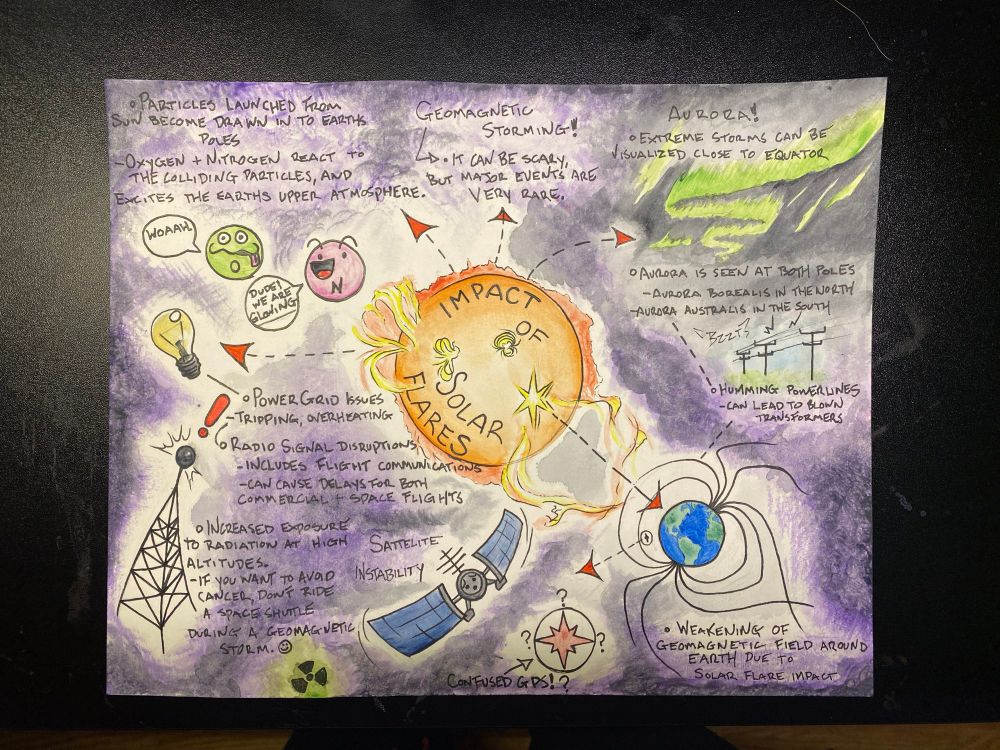 ○ PARTICLES LAUNCHED FROM
SUN BECOME DRAWN IN TO EARTHS
POLES
-OXYGEN + NITROGEN REACT TO
THE COLLIDING PARTICLES, AND
EXCITES THE EARTHS UPPER ATMOSPHERE.
GEOMAGNETIC
STORMING!!
• IT CAN BE SCARY,
BUT MAJOR EVENTS ARE
VERY RARE.
AURORA!!
○ EXTREME STORMS CAN BE
VISUALIZED CLOSE TO EQUATOR
WOAAH
O
DUDE!
WE ARE
GLOWING
N
IMPACT
OF
SOLAR
FLARES
○ AURORA IS SEEN AT BOTH POLES
-AURORA BOREALIS IN THE NORTH
-AURORA AUSTRALIS IN THE SOUTH
BZZTS
○ HUMMING POWERLINES
-CAN LEAD TO BLOWN
TRANSFORMERS
!
○ POWER GRID ISSUES
-TRIPPING, OVERHEATING
○ RADIO SIGNAL DISRUPTIONS
-INCLUDES FLIGHT COMMUNICATIONS
-CAN CAUSE DELAYS FOR BOTH
COMMERCIAL + SPACE FLIGHTS
○ INCREASED EXPOSURE
TO RADIATION AT HIGH
ALTITUDES.
-IF YOU WANT TO AVOID
CANCER, DON'T RIDE
A SPACE SHUTTLE
DURING A GEOMAGNETIC
STORM. ☺
SATTELITE
INSTABILITY
?
? ?
CONFUSED GPS!?
+
○ WEAKENING OF
GEOMAGNETIC FIELD AROUND
EARTH DUE TO
SOLAR FLARE IMPACT